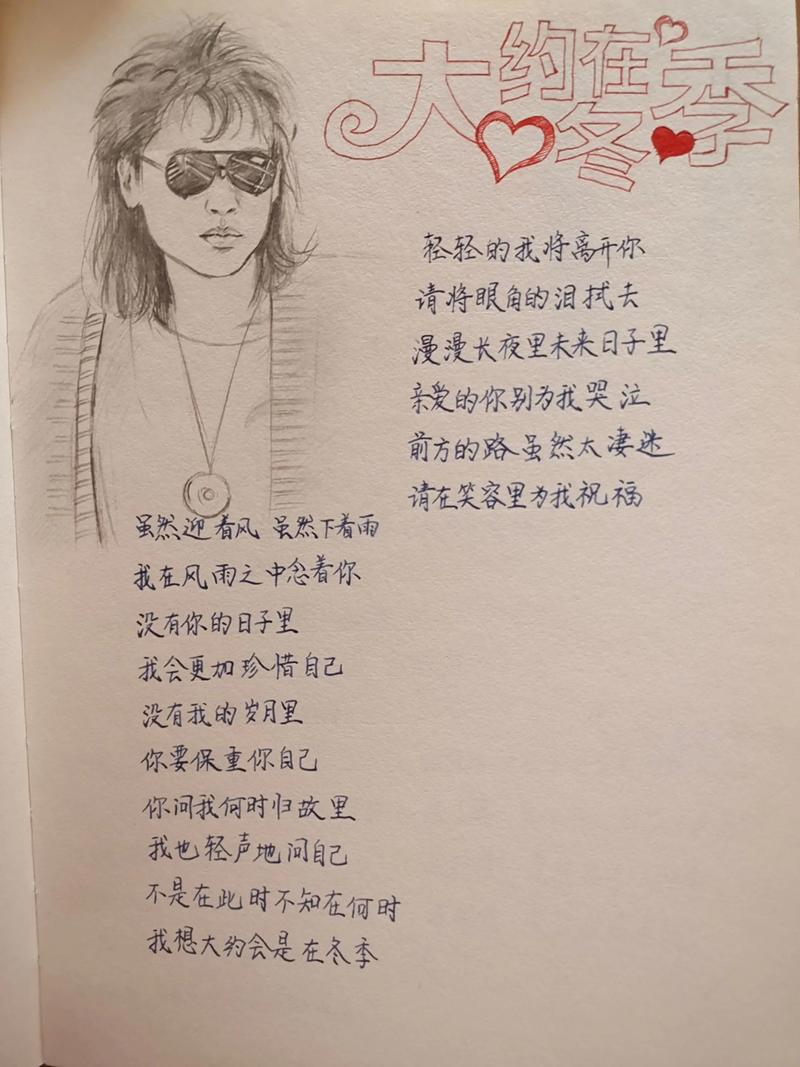 大约在冬季
轻轻的我将离开你
请将眼角的泪拭去
漫漫长夜里未来日子里
亲爱的你别为我哭泣
前方的路虽然太凄迷
请在笑容里为我祝福
虽然迎着风 虽然下着雨
我在风雨之中念着你
没有你的日子里
我会更加珍惜自己
没有我的岁月里
你要保重你自己
你问我何时归故里
我也轻声地问自己
不是在此时不知在何时
我想大约会是在冬季